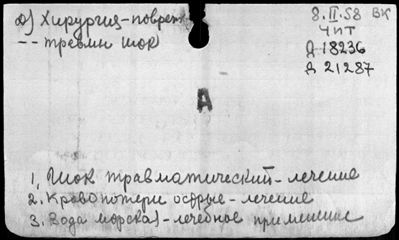 д) Хирургия-поврежд
-- травмы шок
8.II.58 ВК
ЧИТ
Д 18236
Д 21287
А
1. Шок травматический - лечение
2. Кровопотери острые - лечение
3. Вода морская - лечебное применение